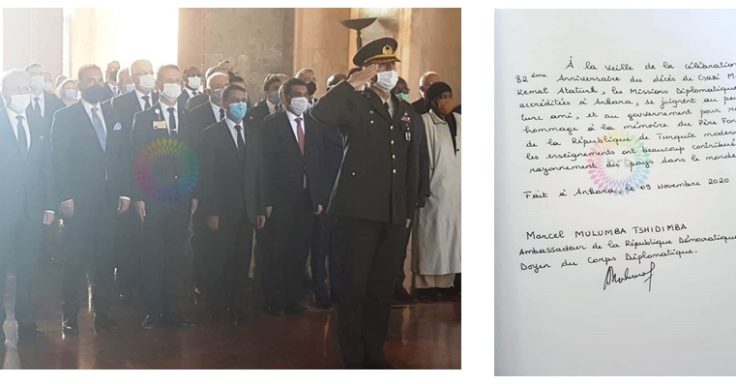 À la veille de la célébration
82 ème Anniversaire du décès de Gazi M
Kemal Atatürk, les Missions Diplomatique
accréditées à Ankara, se joignent au pe
turc ami, et au gouvernement pour r
hommage à la mémoire du Père Fon
de la République de Turquie modern
les enseignements ont beaucoup contribué
rayonnement du pays dans le monde
Fait à Ankara, le 09 Novembre 2020
Marcel MULUMBA TSHIDIMBA
Ambassadeur de la République Démocratique
Doyen du Corps Diplomatique.